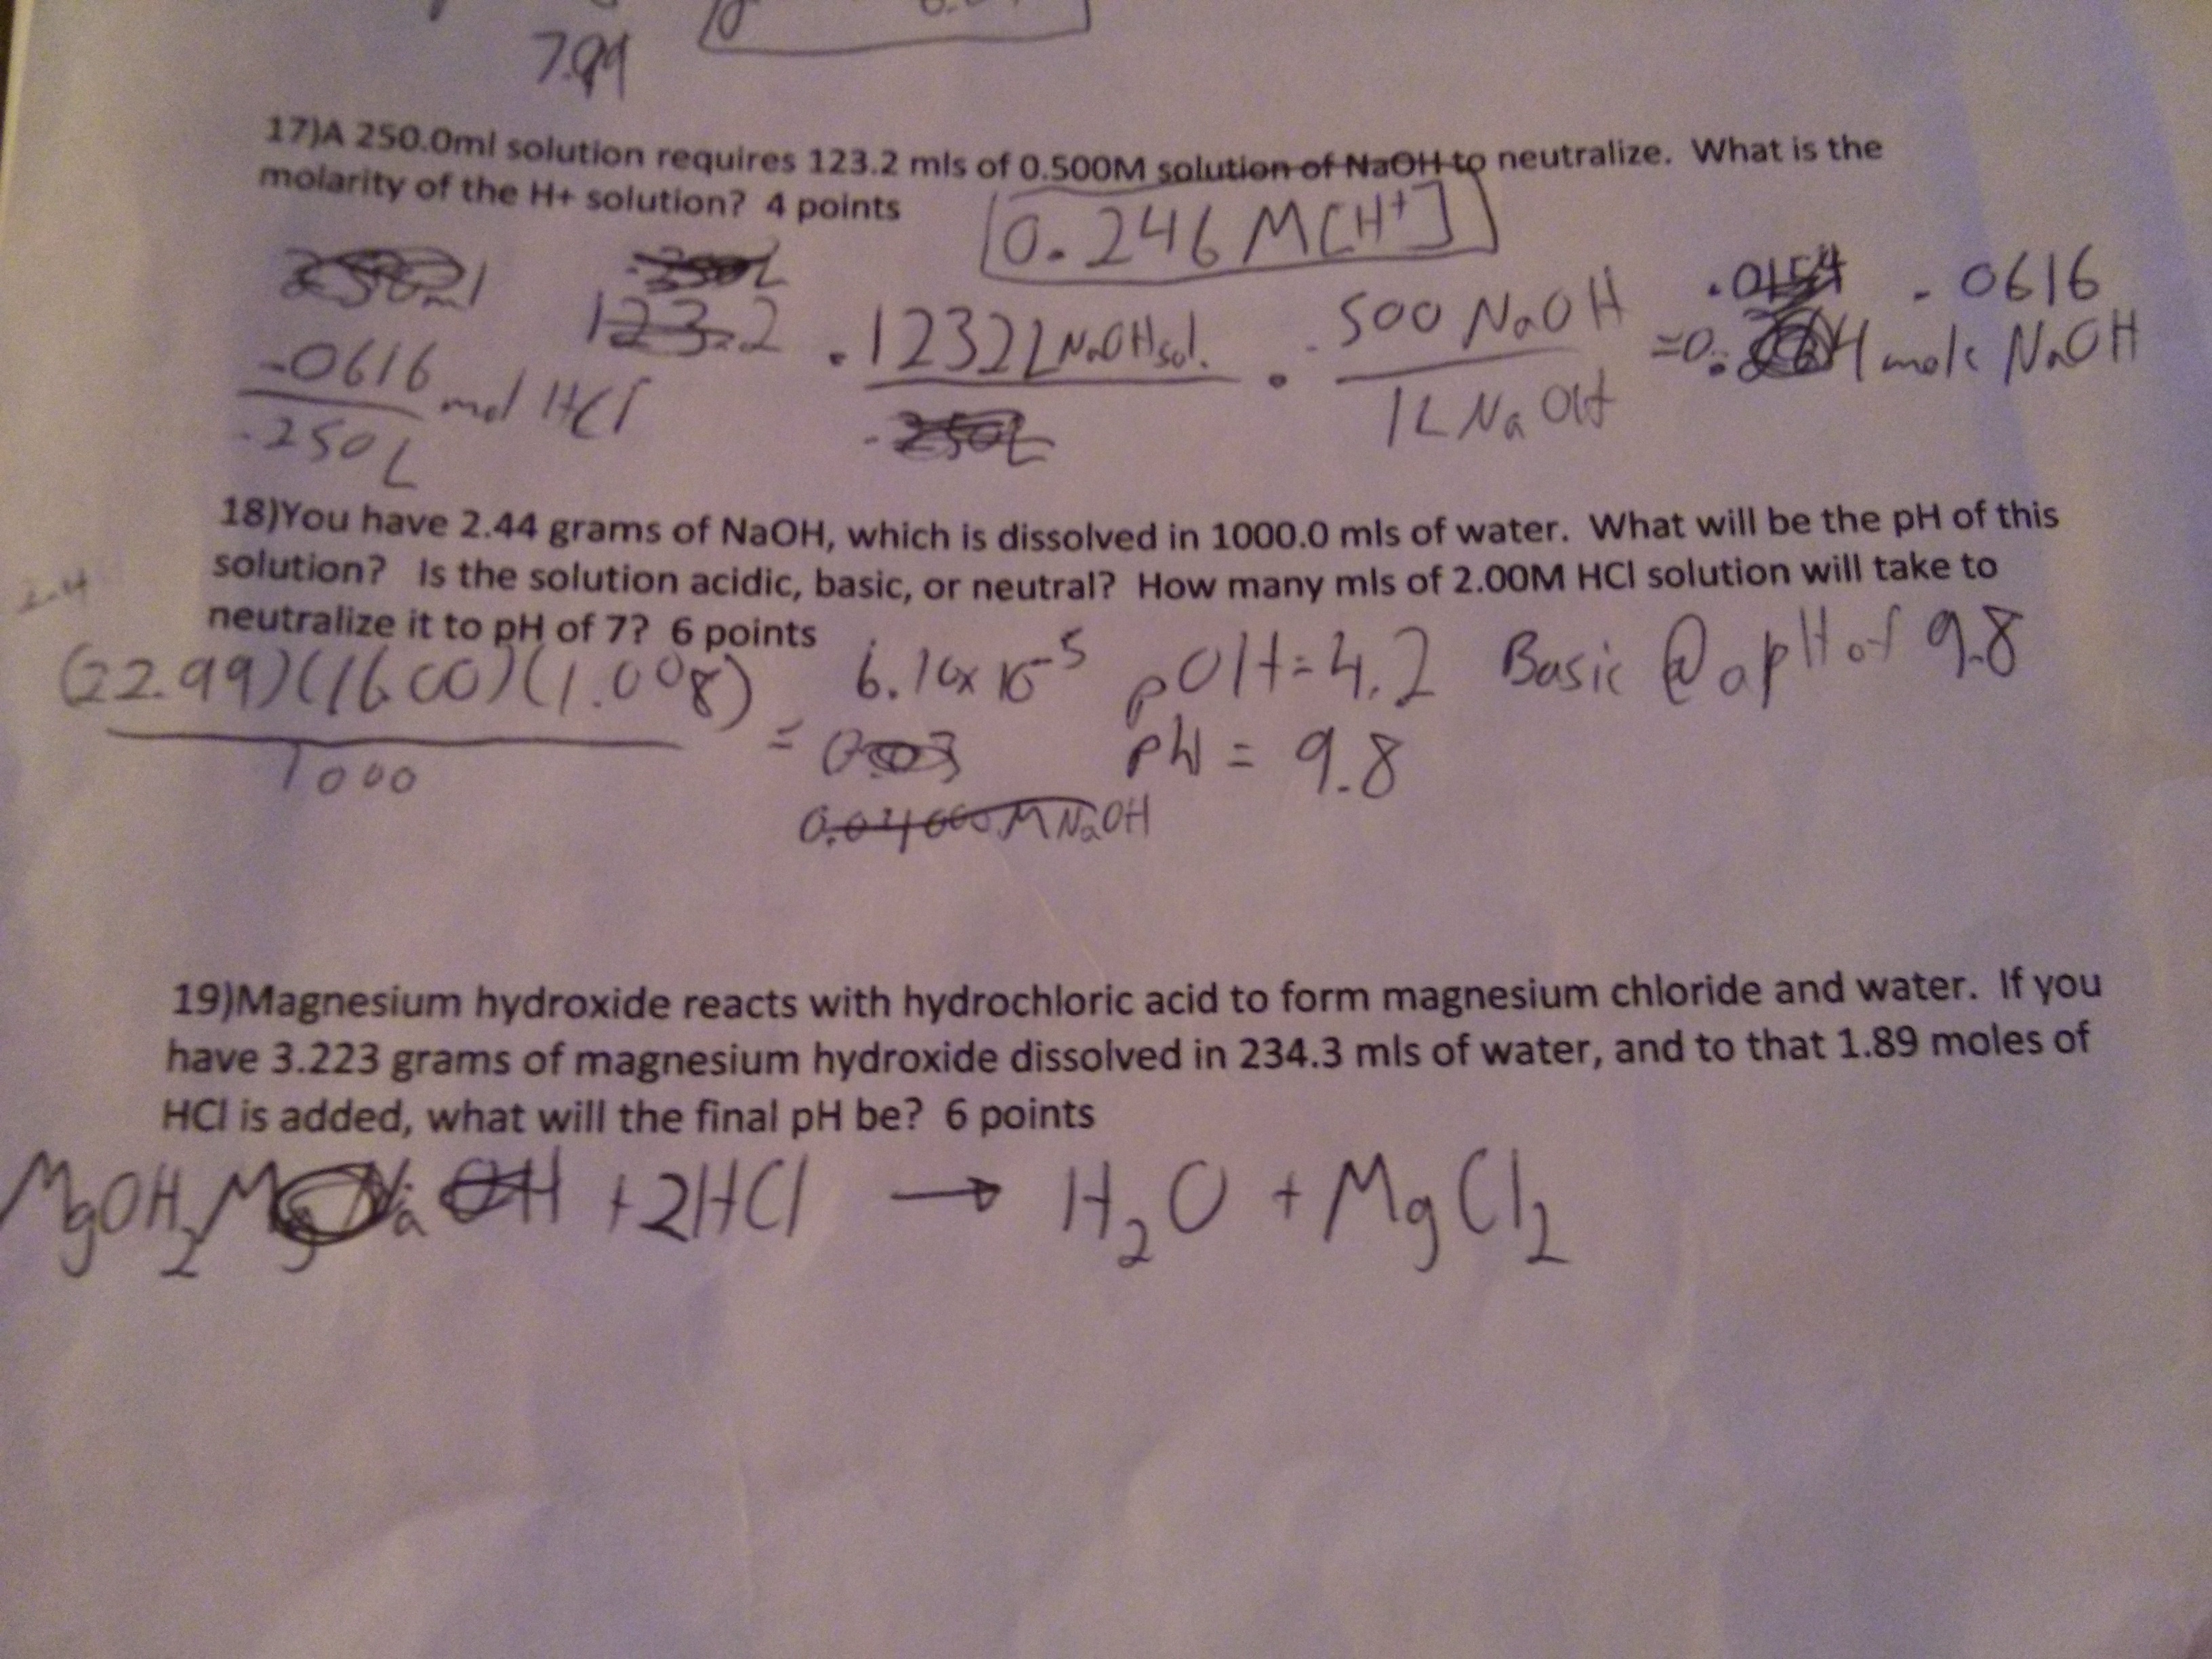 7.99
17)A 250.0ml solution requires 123.2 mls of 0.500M solution of NaOH to neutralize. What is the
molarity of the H+ solution? 4 points
0.246 M [H+]
123.2
.0616 mol HCl
.250 L
.1232 L NaOH sol.
.500 NaOH
1 L NaOH
.0616
=0. mole NaOH
18)You have 2.44 grams of NaOH, which is dissolved in 1000.0 mls of water. What will be the pH of this
solution? Is the solution acidic, basic, or neutral? How many mls of 2.00M HCl solution will take to
2.4
neutralize it to pH of 7? 6 points
(22.99)(16.00)(1.008)
1000
=
6.10x10-5 pOH=4.2 Basic @ a pH of 9.8
pH = 9.8
19)Magnesium hydroxide reacts with hydrochloric acid to form magnesium chloride and water. If you
have 3.223 grams of magnesium hydroxide dissolved in 234.3 mls of water, and to that 1.89 moles of
HCl is added, what will the final pH be? 6 points
MgOH2 + 2HCl → H2O + MgCl2